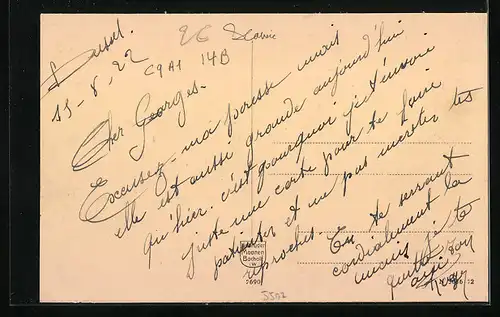 Dussel.
15-8-22
26
C9A1 14B
Cher Georges.
Excusez-ma paresse mais
elle est aussi grande aujourd'hui
qu'hier. c'est pourquoi je t'envoie
juste une carte pour te faire
patienter et ne pas mériter tes
reproches. En te serrant
cordialement la
main je te
quitte ton
ami
7690
5502
72